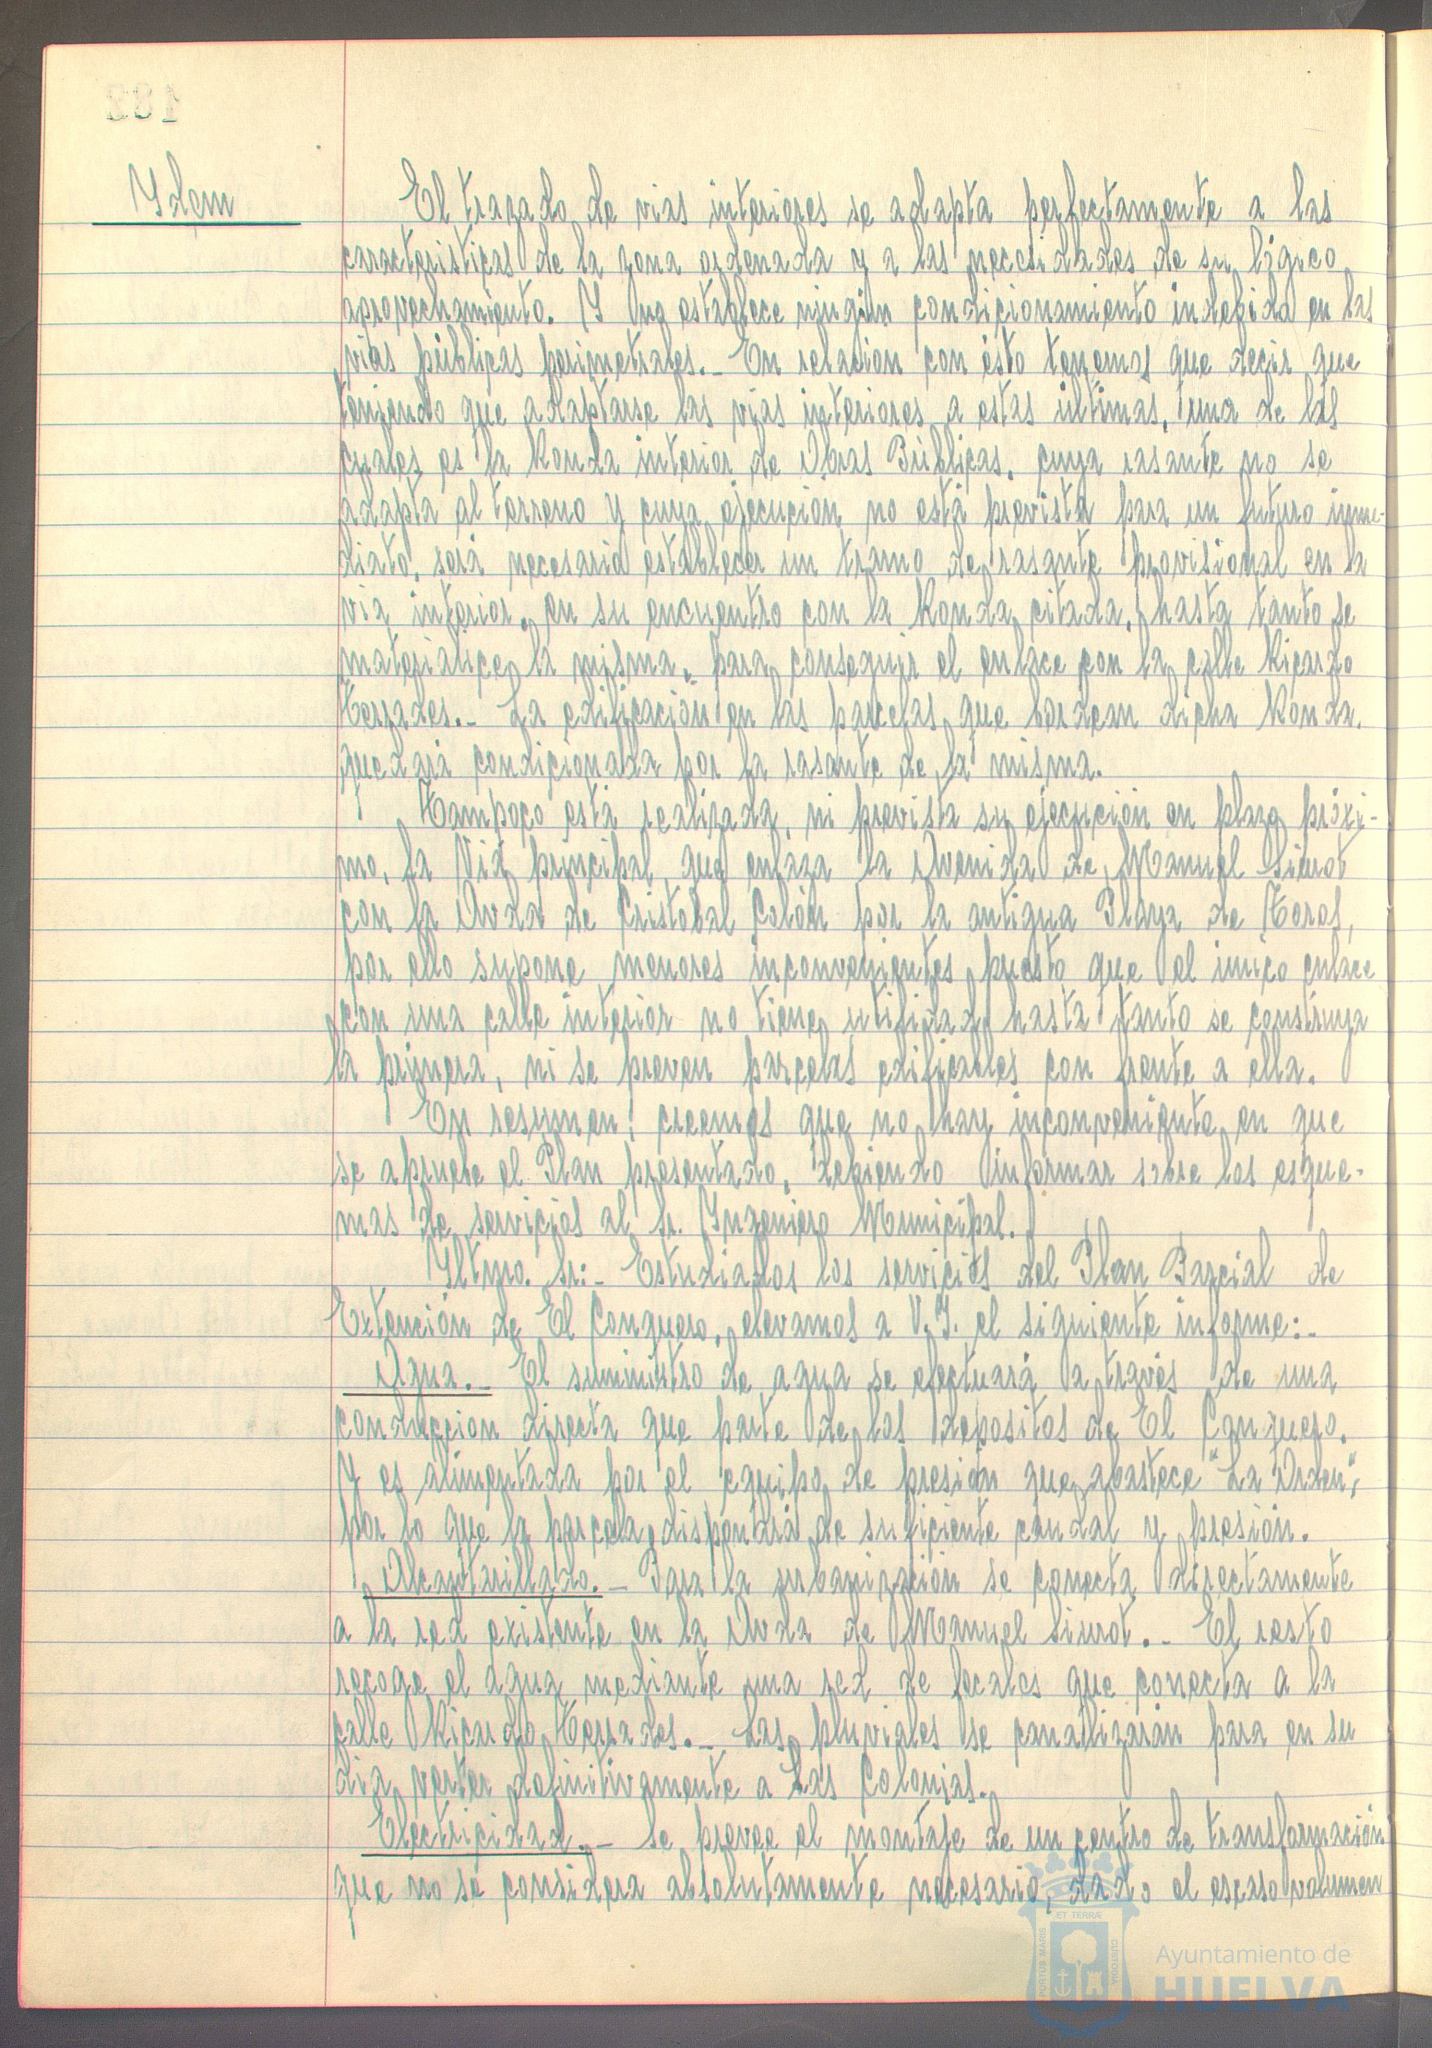 182
Ydem
El trazado de vias interiores se adapta perfectamente a las
caracteristicas de la zona ordenada y a las necesidades de su lógico
aprovechamiento. Y no establece ningún condicionamiento indebido en las
vias públicas perimetrales.- En relación con ésto tenemos que decir que
teniendo que adaptarse las vias interiores a estas últimas, una de las
cuales es la Ronda interior de Obras Públicas, cuya rasante no se
adapta al terreno y cuya ejecución no está prevista para un futuro inme-
diato, será necesario establecer un tramo de rasante provisional en la
via interior, en su encuentro con la Ronda citada, hasta tanto se
materialice la misma, para conseguir el enlace con la calle Ricardo
Terrades.- La edificación en las parcelas que bordean dicha Ronda,
quedará condicionada por la rasante de la misma.
Tampoco está realizada, ni prevista su ejecución en plazo próxi-
mo, la Via principal que enlaza la Avenida de Manuel Siurot
con la Avda de Cristobal Colón por la antigua Plaza de Toros,
por ello supone menores inconvenientes puesto que el único enlace
con una calle interior no tiene utilidad hasta tanto se construya
la primera, ni se preven parcelas edificables con frente a ella.
En resumen, creemos que no hay inconveniente en que
se apruebe el Plan presentado, debiendo informar sobre los esque-
mas de servicios al Sr. Ingeniero Municipal.
Iltmo. Sr:- Estudiados los servicios del Plan Parcial de
Extención de El Conquero, elevamos a V.I. el siguiente informe:-
Agua.- El suministro de agua se efectuará a través de una
conducción directa que parte de los depositos de El Conquero.
Y es alimentada por el equipo de presión que abastece "La Orden",
por lo que la parcela dispondrá de suficiente caudal y presión.
Alcantarillado.- Para la urbanización se conecta directamente
a la red existente en la Avda de Manuel Siurot.- El resto
recoge el agua mediante una red de fecales que conecta a la
calle Ricardo Terrades.- Las pluviales se canalizarán para en su
dia verter definitivamente a Las Colonias.
Electricidad.- Se prevee el montaje de un centro de transformación
que no se considera absolutamente necesario, dado el escaso volumen
PORTUS MARIS
ET TERRÆ
CUSTODIA
Ayuntamiento de
HUELVA